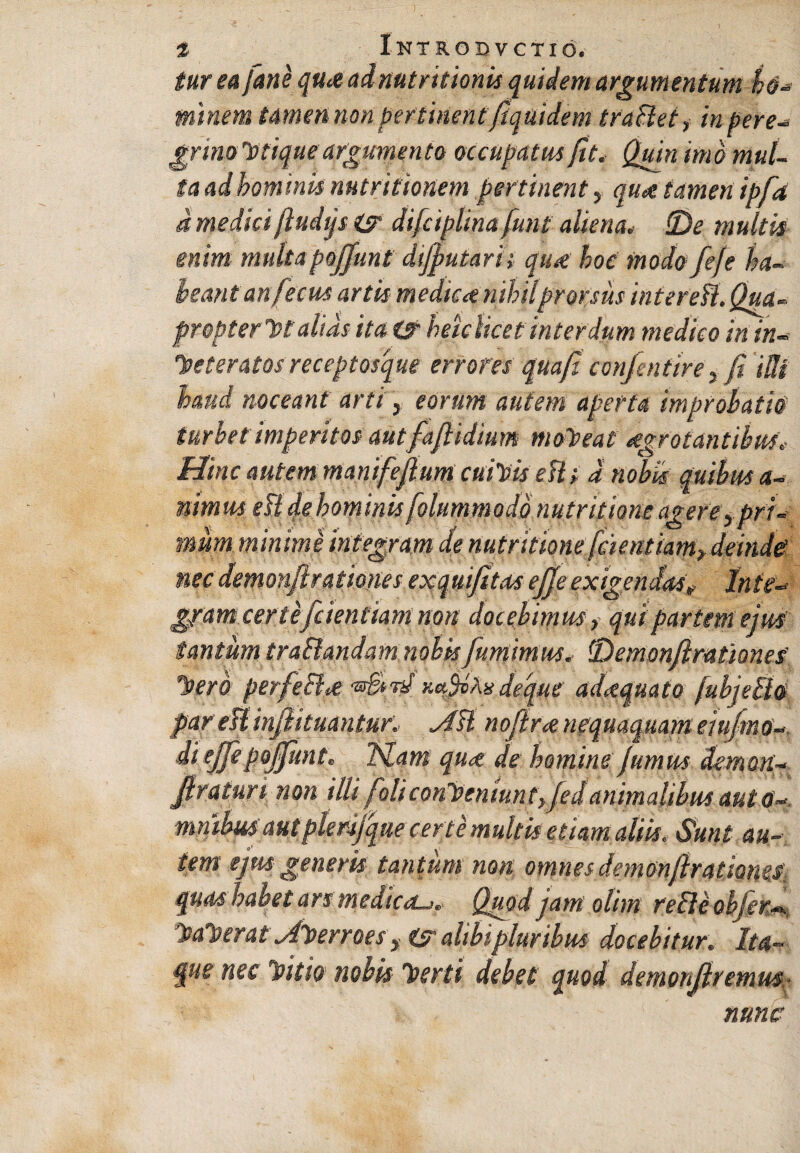 2 INTRODVCTIO.
tur ea sane quæ ad nutritionis quidem argumentum ho-
minem tamen non pertinent siquidem tractet, in pere-
grino vtique argumento occupatus sit. Quin imò mul-
ta ad hominis nutritionem pertinent, quæ tamen ipsa
à medici studijs & disciplina sunt aliena. De multis
enim multa possunt disputari; quæ hoc modo sese ha-
beant an secus artis medicæ nihil prorsùs interest. Qua-
propter vt aliàs ita & heîc licet interdum medico in in-
veteratos receptosque errores quasi consentire, si illi
haud noceant arti, eorum autem aperta improbatio
turbet imperitos aut fastidium moveat ægrotantibus.
Hinc autem manifestum cuivis est; à nobis quibus a-
nimus est de hominis solummodò nutritione agere, pri-
mùm minimè integram de nutritione scientiam, deinde
nec demonstrationes exquisitas esse exigendas. Inte-
gram certè scientiam non docebimus, qui partem ejus
tantùm tractandam nobis sumimus. Demonstrationes
verò perfectæ ϖϵρὶ τȣ͂ καθόλȣ deque adæquato subjecto
par est instituantur. Ast nostræ nequaquam eiusmo-
di esse possunt. Nam quæ de homine sumus demon-
straturi non illi soli conveniunt, sed animalibus aut o-
mnibus aut plerisque certè multis etiam aliis. Sunt au-
tem ejus generis tantùm non omnes demonstrationes
quas habet ars medica. Quod jam olim rectè obser-
vaverat Averroes, & alibi pluribus docebitur. Ita-
que nec vitio nobis verti debet quod demonstremus
nunc